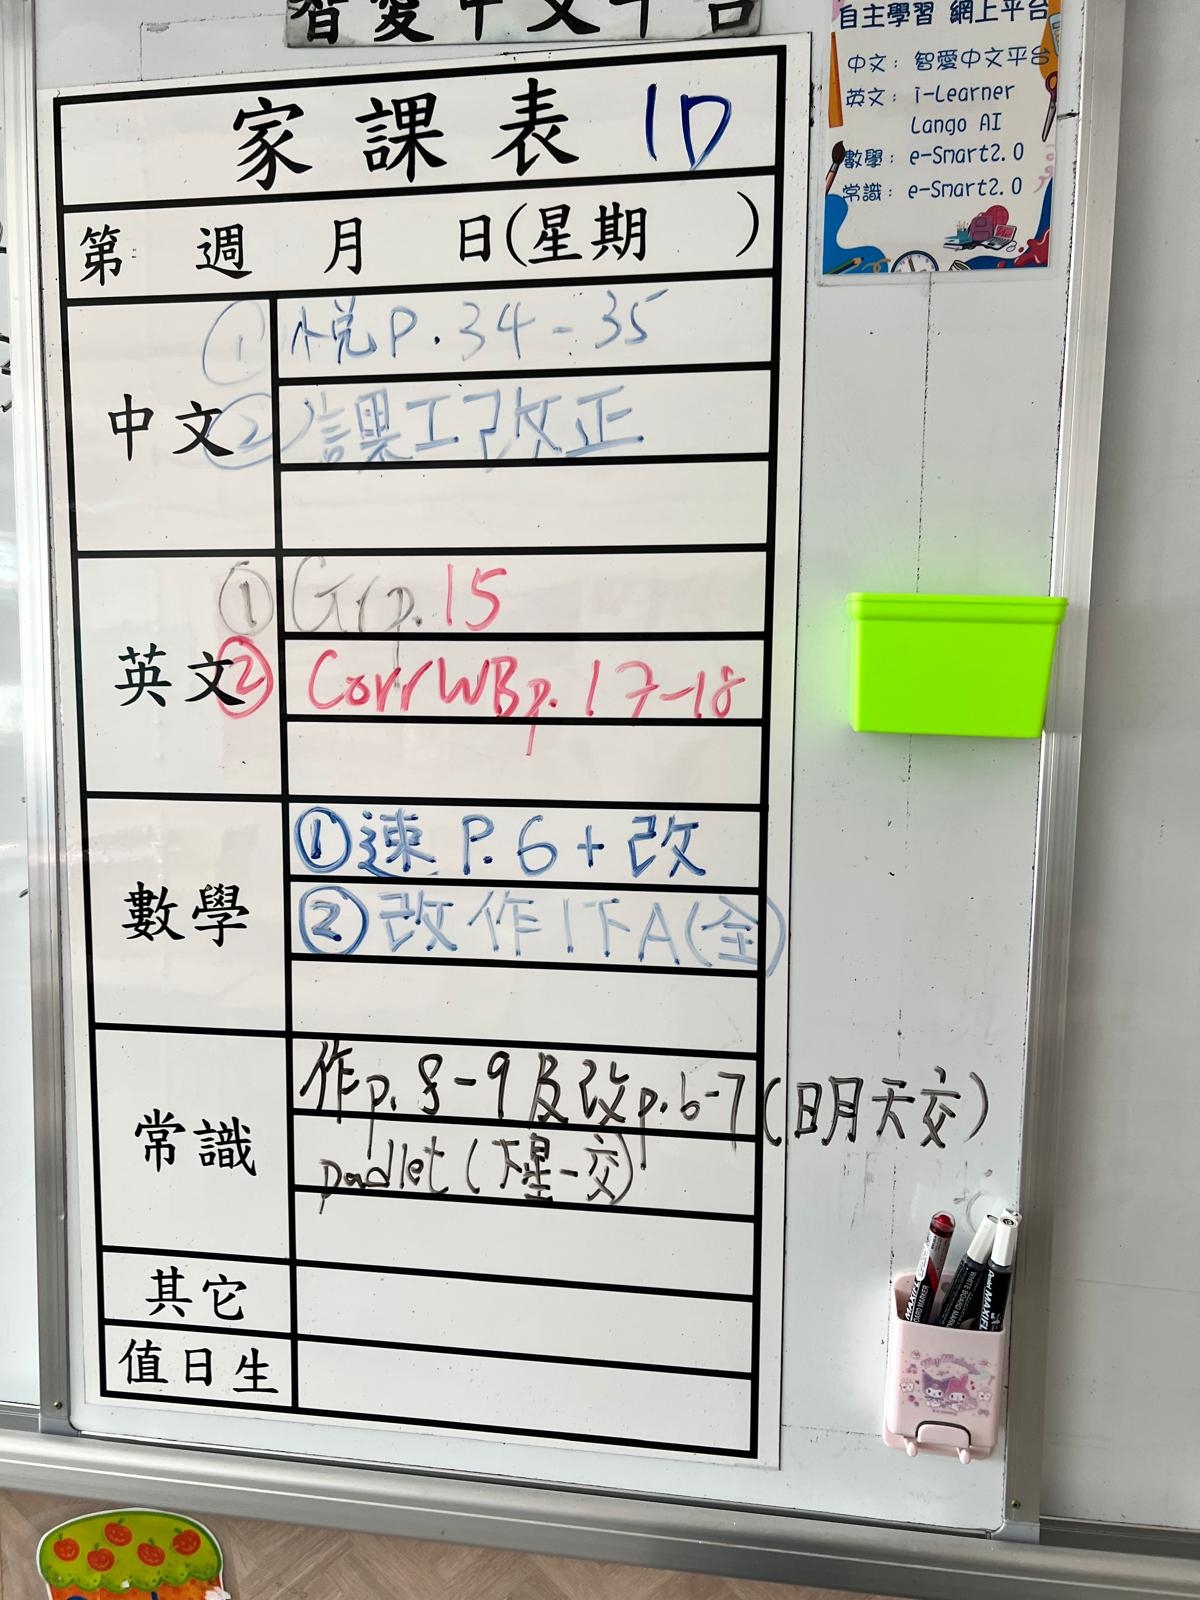 智愛中文平台
自主學習 網上平台
中文：智愛中文平台
英文：i-Learner
Lango AI
數學：e-Smart2.0
常識：e-Smart2.0
家課表 1D
第 週 月 日(星期 )
中文
① 悅P.34-35
② 課工改正
英文
① Gr p.15
② Corr WB p.17-18
數學
① 速 P.6+改
② 改作1下A(全)
常識
作p.8-9及改p.6-7(明天交)
padlet(下星一交)
其它
值日生